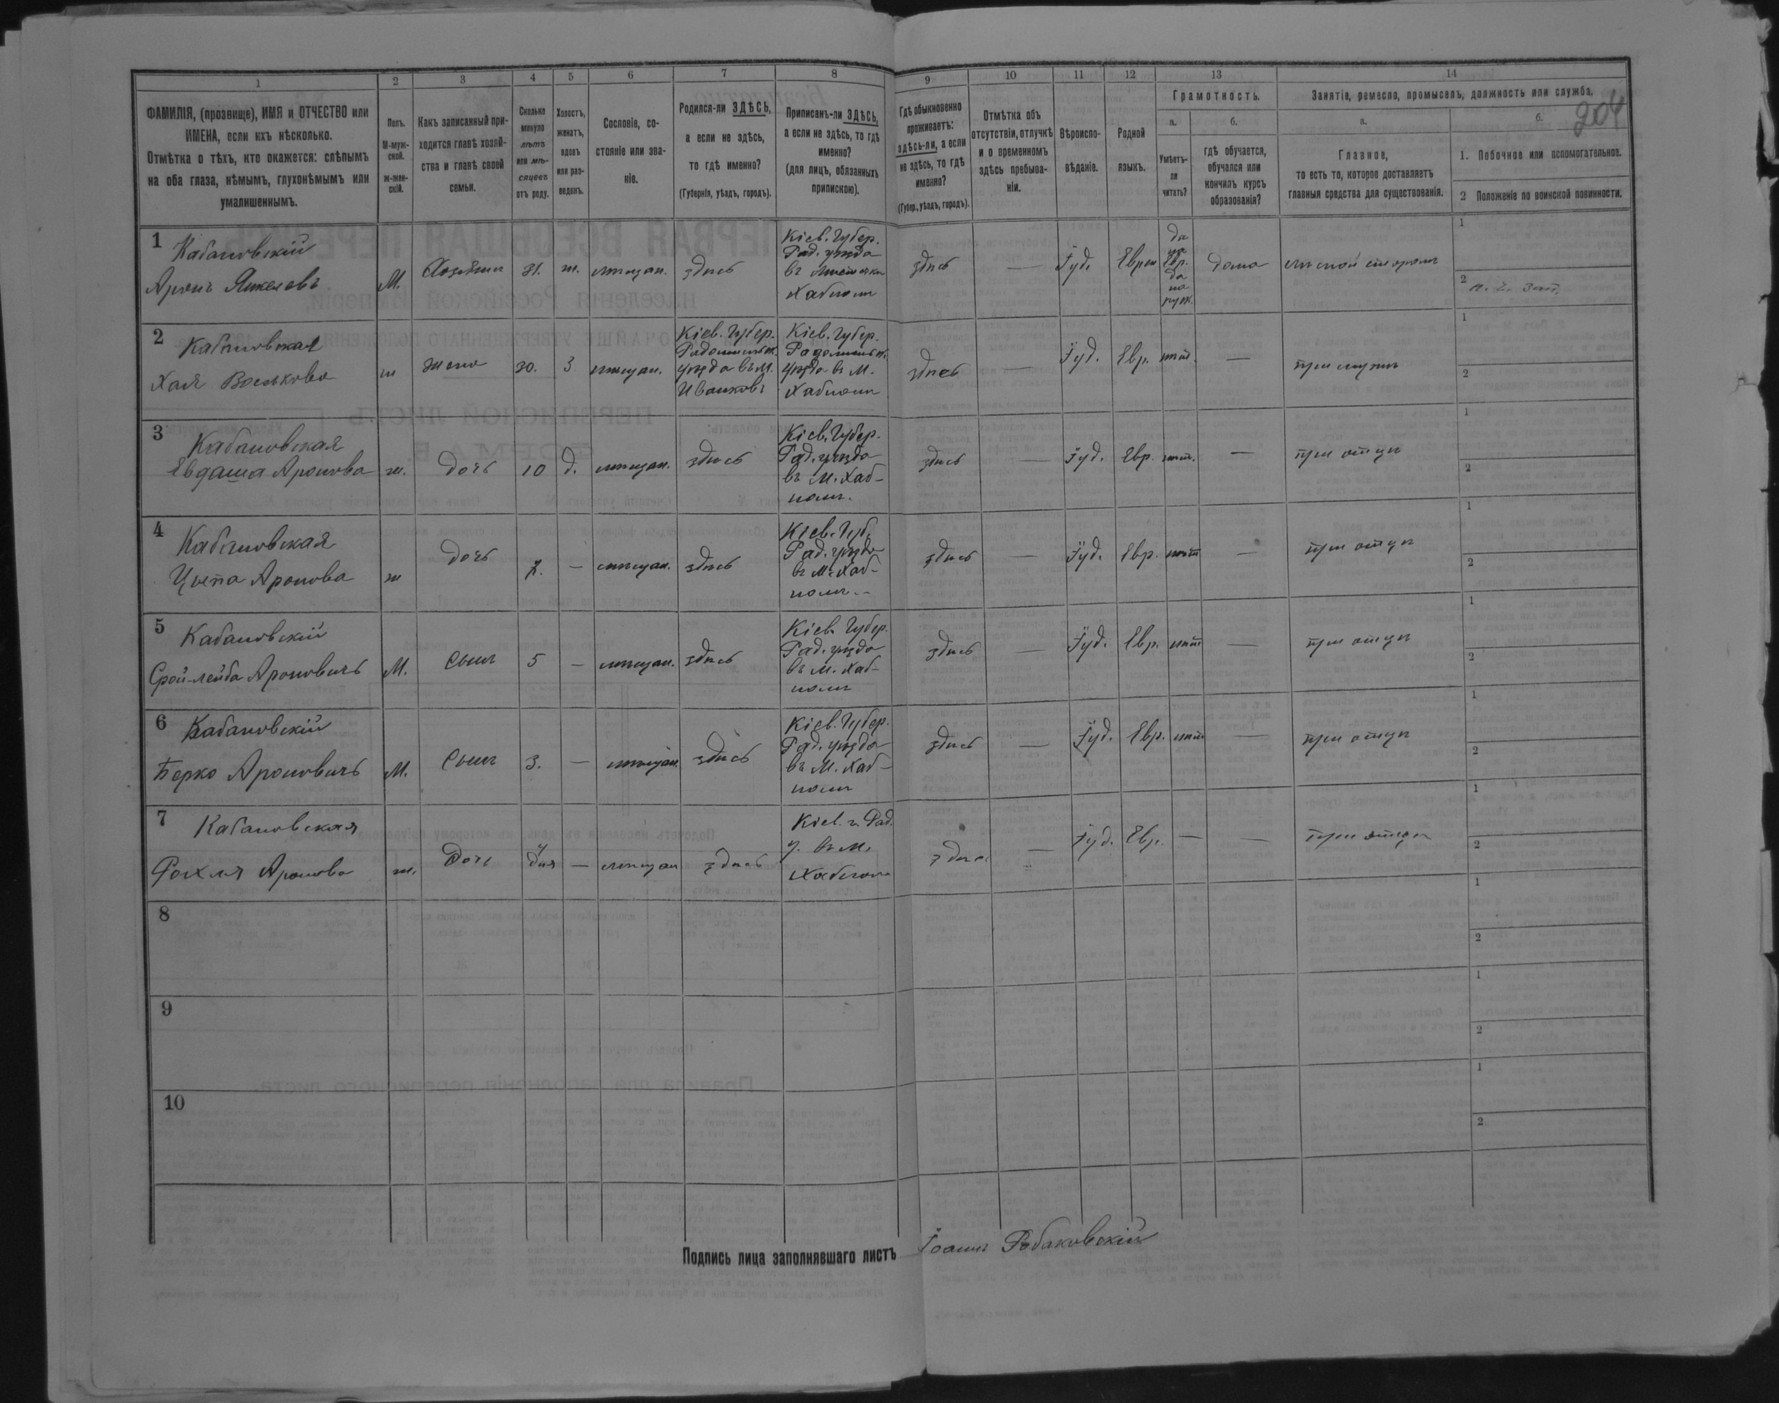 1
2
3
4
5
6
7
8
9
10
11
12
13
14
204
ФАМИЛІЯ, (прозвище), ИМЯ и ОТЧЕСТВО или
ИМЕНА, если ихъ нѣсколько.
Отмѣтка о тѣхъ, кто окажется: слѣпымъ
на оба глаза, нѣмымъ, глухонѣмымъ или
умалишеннымъ.
Полъ.
М-муж-
ской.
ж-жен-
скій.
Какъ записанный при-
ходится главѣ хозяй-
ства и главѣ своей
семьи.
Сколько
минуло
лѣтъ
или мѣ-
сяцевъ
отъ роду.
Холостъ,
женатъ,
вдовъ
или раз-
веденъ.
Сословіе, со-
стояніе или зва-
ніе.
Родился-ли ЗДѢСЬ,
а если не здѣсь,
то гдѣ именно?
(Губернія, уѣздъ, городъ).
Приписанъ-ли ЗДѢСЬ,
а если не здѣсь, то гдѣ
именно?
(для лицъ, обязанныхъ
припискою).
Гдѣ обыкновенно
проживаетъ:
здѣсь-ли, а если
не здѣсь, то гдѣ
именно?
(Губер., уѣздъ, городъ).
Отмѣтка объ
отсутствіи, отлучкѣ
и о временномъ
здѣсь пребыва-
ніи.
Вѣроиспо-
вѣданіе.
Родной
языкъ.
Грамотность.
а.
Умѣетъ-
ли
читать?
б.
гдѣ обучается,
обучался или
кончилъ курсъ
образованія?
Занятіе, ремесло, промыселъ, должность или служба.
а.
Главное,
то есть то, которое доставляетъ
главныя средства для существованія.
б.
1. Побочное или вспомогательное.
2 Положеніе по воинской повинности.
1 Кабановскій
Аронъ Янкелевъ
М.
Хозяинъ
31.
ж.
мѣщан.
здѣсь
Кіев. Губер.
Рад. уѣзда
въ Мѣстечкѣ
Хабномъ
здѣсь
—
Іуд.
Еврей
да
на
Евр.
да
на
русс.
дома
1
2
2 Кабановская
Хая Волькова
ж
жена
30.
З.
мѣщан.
Кіев. Губер.
Радомыськ.
уѣзда въ М.
Иванковъ
Кіев. Губер.
Радомыськ.
уѣзда въ М.
Хабномъ
здѣсь
—
Іуд.
Евр.
нѣт.
—
при мужѣ
1
2
3 Кабановская
Евдаша Аронова
ж.
дочь
10
д.
мѣщан.
здѣсь
Кіев. Губер.
Рад. уѣзда
въ М. Хаб-
номъ.
здѣсь
—
Іуд.
Евр.
нѣт.
—
при отцѣ
1
2
4 Кабановская
Цыпа Аронова
ж
дочь
7.
—
мѣщан.
здѣсь
Кіев. Губ.
Рад. уѣзда
въ М. Хаб-
номъ. -
здѣсь
—
Іуд.
Евр.
нѣт
—
при отцѣ
1
2
5 Кабановскій
Срой-лейба Ароновичъ
М.
Сынъ
5
—
мѣщан.
здѣсь
Кіев. Губер.
Рад. уѣзда
въ М. Хаб-
номъ
здѣсь
—
Іуд.
Евр.
нѣт
—
при отцѣ
1
2
6 Кабановскій
Берко Ароновичъ
М.
Сынъ
3.
—
мѣщан.
здѣсь
Кіев. Губер.
Рад. уѣзда
въ М. Хаб-
номъ
здѣсь
—
Іуд.
Евр.
нѣт
—
при отцѣ
1
2
7 Кабановская
Рохля Аронова
ж.
Дочь
дня
—
мѣщан
здѣсь
Кіев. г. Рад.
у. въ М.
Хабномъ
здѣс.
—
Іуд.
Евр.
—
—
при отцѣ
1
2
8
1
2
9
1
2
10
1
2
Подпись лица заполнявшаго листъ Іоанъ Рабаковскій